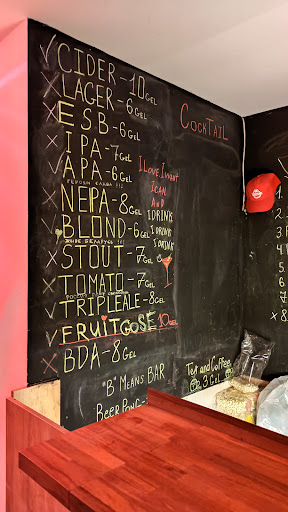 CIDER - 10 GEL
LAGER - 6 GEL
ESB - 6 GEL
IPA - 7 GEL
APA - 6 GEL
NEPA - 8 GEL
BLOND - 6 GEL
STOUT - 7 GEL
TOMATO - 7 GEL
TRIPLE ALE - 8 GEL
FRUIT GOSE 10 GEL
BDA - 8 GEL
"B" MEANS BAR
BEER PONG -
COCKTAIL
I LOVE I WANT
I CAN
AND
I DRINK
I DRINK
I DRINK
Tea and Coffee
3 GEL